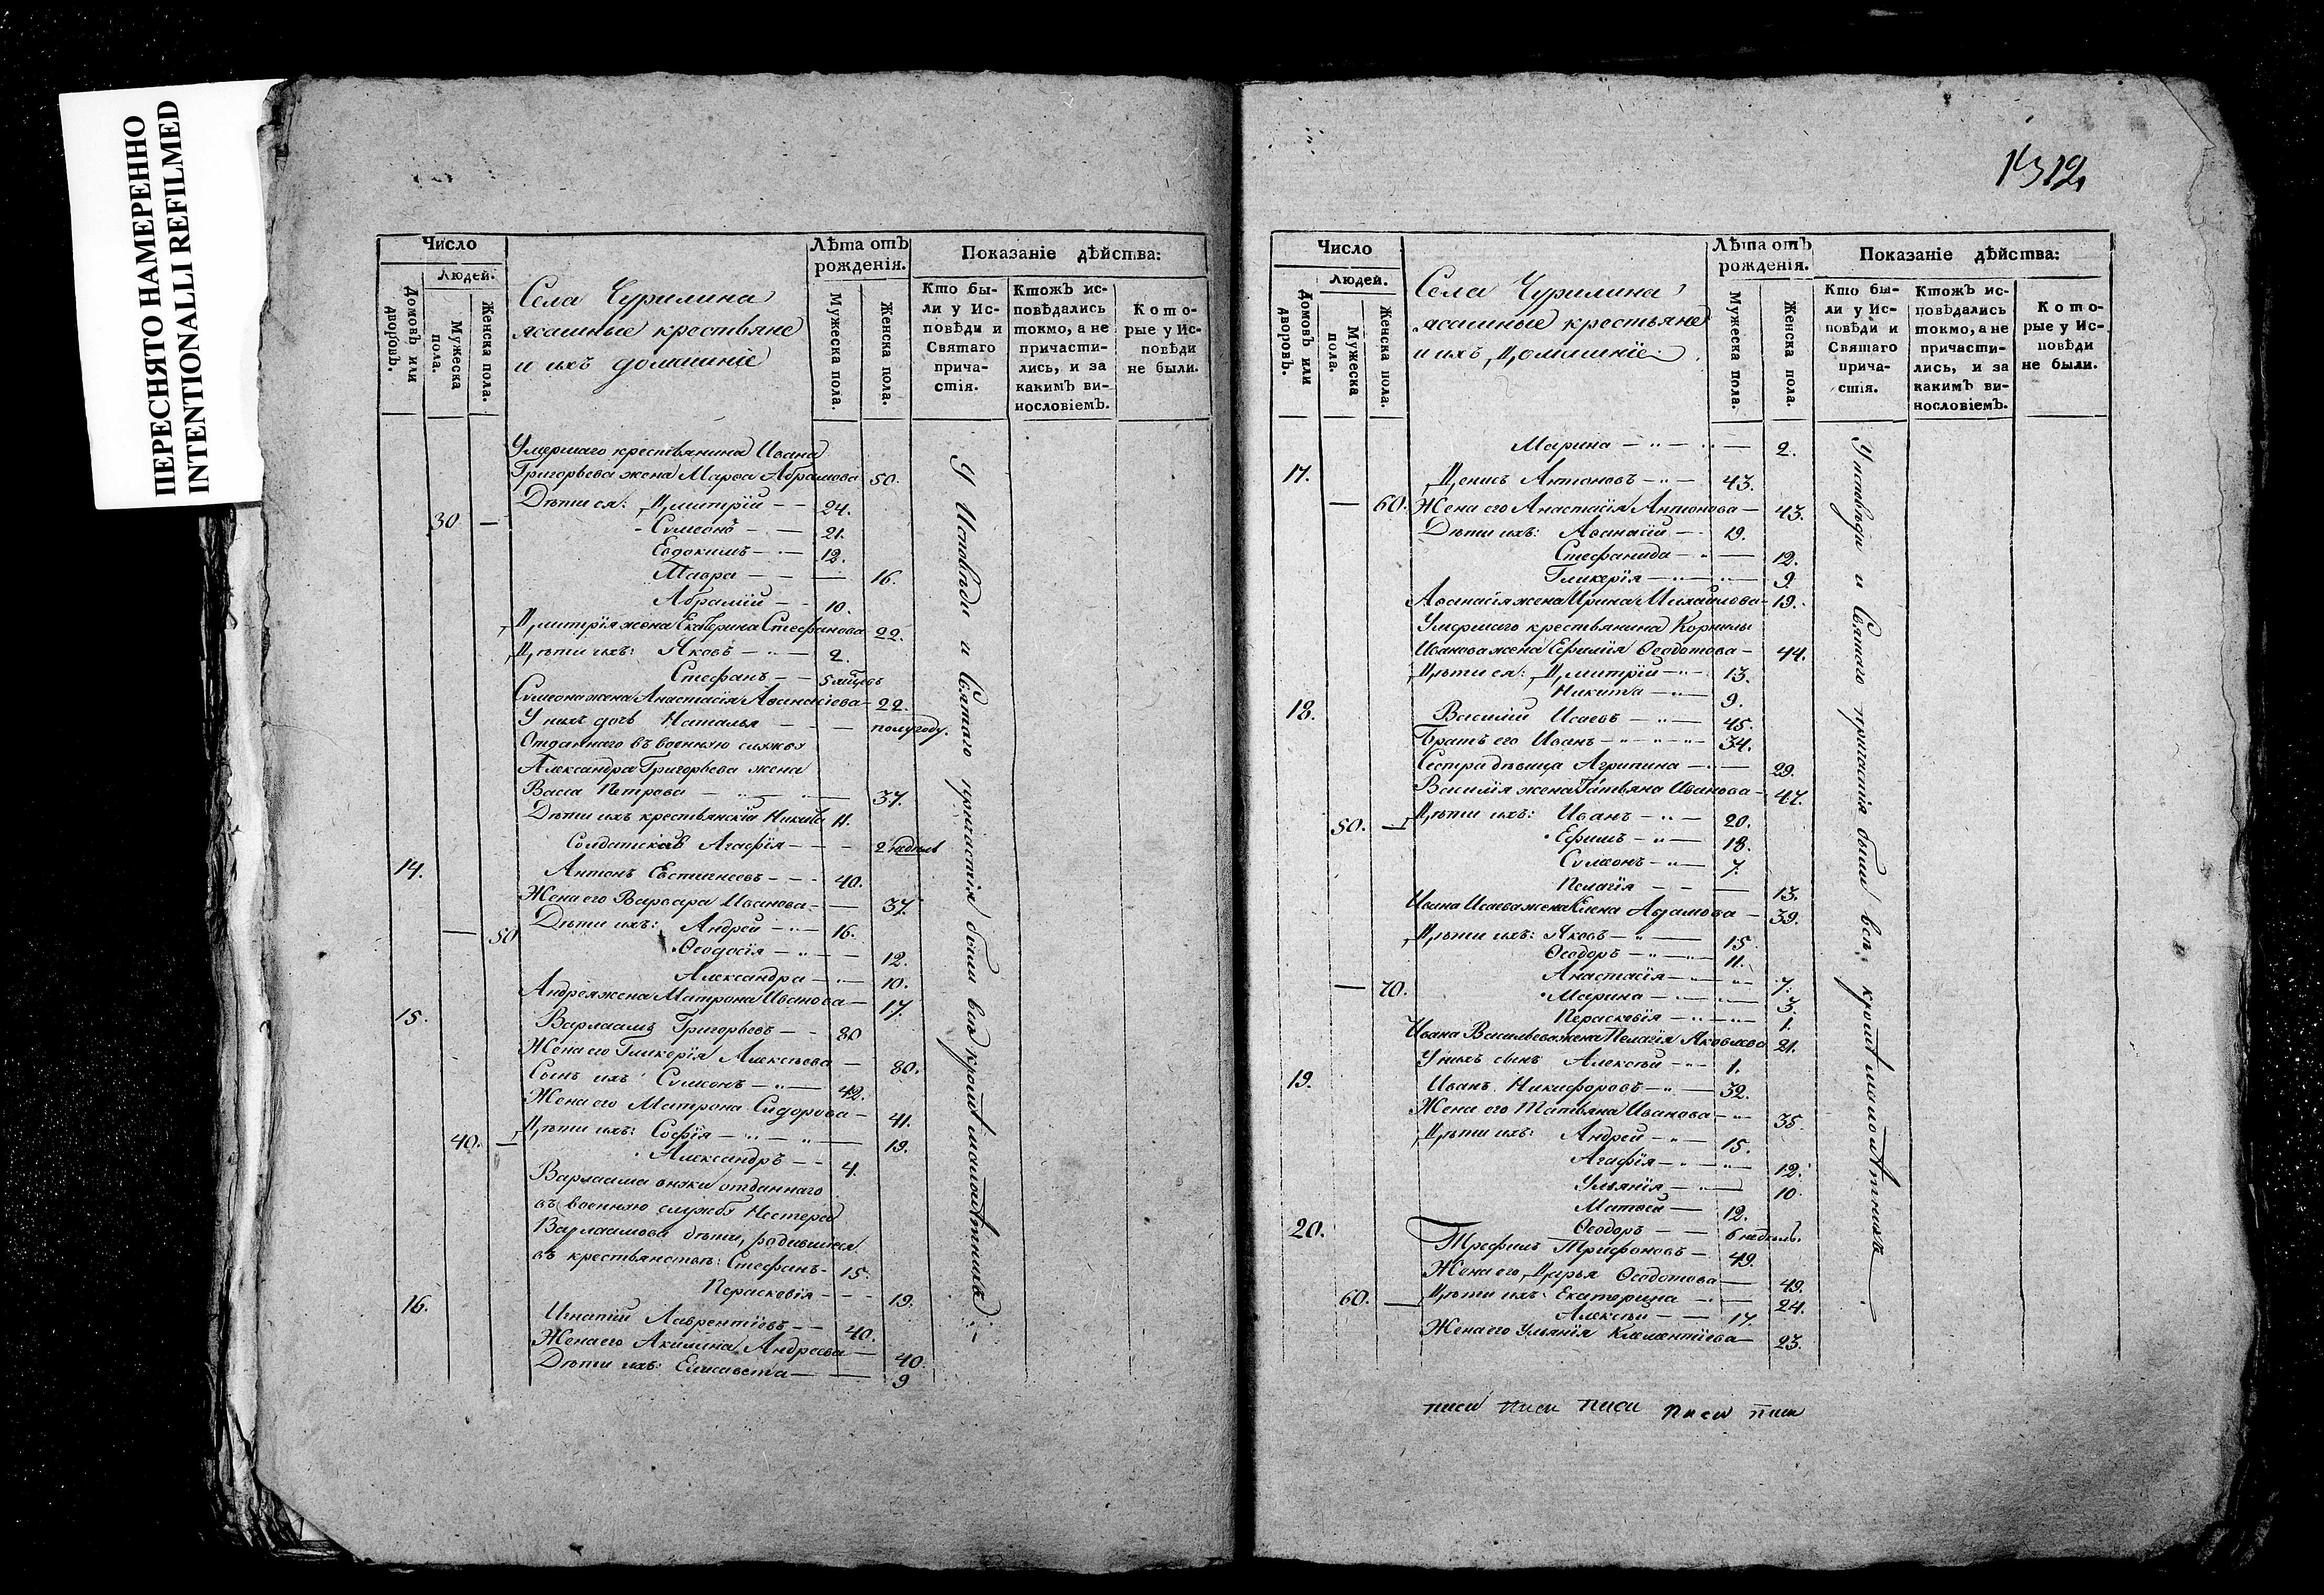 ПЕРЕСНЯТО НАМЕРЕННО
INTENTIONALLI REFILMED
Число
Людей.
Домовъ или дворовъ.
Мужеска пола.
Женска пола.
Села Чурилина
ясашные крестьяне
и ихъ домашніе
Лѣта отъ рожденія.
Мужеска пола.
Женска пола.
Показаніе дѣйства:
Кто бы-
ли у Ис-
повѣди и
Святаго
прича-
стія.
Ктожъ ис-
повѣдались
токмо, а не
причасти-
лись, и за
какимъ ви-
нословіемъ.
Кото-
рые у Ис-
повѣди
не были.
Умершаго крестьянина Ивана
Григорьева жена Марѳа Абрамова 50.
Дѣти ея: Димитрій — 24.
30 — Сѵмеонъ — 21.
Евдокимъ — 12.
Мавра — 16.
Абрамій — 10.
Димитрія жена Екатерина Стефанова 22.
Дѣти ихъ: Яковъ — 2.
Стефанъ — 5 мѣцовъ
Сѵмеона жена Анастасія Аѳанасіева 22.
У нихъ дочь Наталья — полугоду.
Отданнаго въ военную службу
Александра Григорьева жена
Васса Петрова — 37.
Дѣти ихъ крестьянскій Никита 11.
Солдатская Агафія — 2 недѣль
14. Антонъ Евстигнеевъ — 40.
Жена его Варвара Иванова — 37.
— 50 Дѣти ихъ: Андрей — 16.
Ѳеодосія — 12.
Александра — 10.
Андрея жена Матрона Иванова — 17.
15. Варлаамъ Григорьевъ — 80
Жена его Гликерія Алексѣева — 80.
Сынъ ихъ Сѵмеонъ — 42.
Жена его Матрона Сидорова — 41.
Дѣти ихъ: Софія — 19.
40. — Александръ — 4.
Варлаама внуки отданнаго
въ военную службу Нестера
Варлаамова дѣти, родившіеся
въ крестьянствѣ: Стефанъ — 15.
Параскевія — 19.
16. Игнатій Лаврентіевъ — 40.
Жена его Акилина Андреева — 40.
Дѣти ихъ: Елисавета — 9
У Исповѣди и Святаго причастія были всѣ кромѣ малолѣтныхъ
1312
Число
Людей.
Домовъ или дворовъ.
Мужеска пола.
Женска пола.
Села Чурилина
ясашные крестьяне
и ихъ домашніе.
Лѣта отъ рожденія.
Мужеска пола.
Женска пола.
Показаніе дѣйства:
Кто бы-
ли у Ис-
повѣди и
Святаго
прича-
стія.
Ктожъ ис-
повѣдались
токмо, а не
причасти-
лись, и за
какимъ ви-
нословіемъ.
Кото-
рые у Ис-
повѣди
не были.
Марина — 2.
17. Денисъ Антоновъ — 43.
— 60. Жена его Анастасія Антонова — 43.
Дѣти ихъ: Аѳанасій — 19.
Стефанида — 12.
Гликерія — 9.
Аѳанасія жена Ирина Михайлова — 19.
Умершаго крестьянина Корнилы
Иванова жена Ефимія Ѳеодотова — 44.
Дѣти ея: Димитрій — 13.
Никита — 9.
18. Василій Исаевъ — 45.
Братъ его Иванъ — 34.
Сестра дѣвица Агрипина — 29.
Василія жена Татьяна Иванова — 47.
50. — Дѣти ихъ: Иванъ — 20.
Ефимъ — 18.
Сѵмеонъ — 7.
Пелагія — 13.
Ивана Исаева жена Елена Адамова — 39.
Дѣти ихъ: Яковъ — 15
Ѳеодоръ — 11.
Анастасія — 7.
— 70. Марина — 3.
Параскевія — 1.
Ивана Васильева жена Пелагія Яковлева 21.
У нихъ сынъ Алексѣй — 1.
19. Иванъ Никифоровъ — 32.
Жена его Татьяна Иванова — 35.
Дѣти ихъ: Андрей — 15.
Агафія — 12.
Ульянія — 10.
Матвей — 12.
Ѳеодоръ — 6 недѣль.
20. Трефилъ Трифоновъ — 49.
Жена его Дарья Ѳеодотова — 49.
60. — Дѣти ихъ: Екатерина — 24.
Алексѣй — 17.
Жена его Ульянія Клементіева — 23.
У исповѣди и Святаго причастія были всѣ кромѣ малолѣтнихъ
писи писи писи писи писи